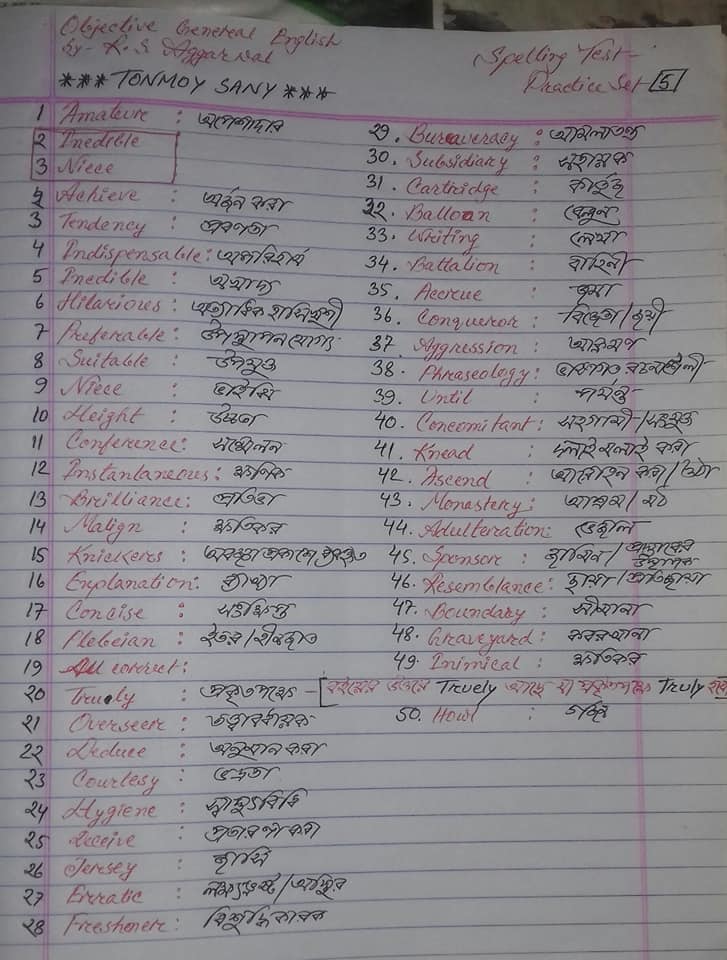 Objective General English
by- R. S Aggarwal
Spelling Test-
Practice Set 5
*** TONMOY SANY ***
1 Amateur : অপেশাদার
2 Inedible
3 Niece
2 Achieve : অর্জন করা
3 Tendency : প্রবণতা
4 Indispensable: অপরিহার্য
5 Inedible : অখাদ্য
6 Hilarious : অত্যাধিক হাসিখুশী
7 Preferable: উপস্থাপন যোগ্য
8 Suitable : উপযুক্ত
9 Niece : ভাইঝি
10 Height : উচ্চতা
11 Conference: সম্মেলন
12 Instantaneous: ক্ষণিক
13 Brilliance: প্রতিভা
14 Malign : ক্ষতিকর
15 Knickers :
16 Explanation: ব্যাখ্যা
17 Concise : সংক্ষিপ্ত
18 Plebeian : ইতর/হীনজাত
19 All correct:
20 Truely : প্রকৃতপক্ষে - [বইয়ের উত্তরে Truely আছে যা প্রকৃতপক্ষে Truly হবে
21 Overseer : তত্ত্বাবধায়ক
22 Deduce : অনুমান করা
23 Courtesy : ভদ্রতা
24 Hygiene : স্বাস্থ্যবিধি
25 Deceive : প্রতারণা করা
26 Jersey : জার্সি
27 Erratic : লক্ষ্যভ্রষ্ট/অস্থির
28 Freshener: বিশুদ্ধিকারক
29. Bureaucracy : আমলাতন্ত্র
30. Subsidiary : সহায়ক
31. Cartridge : কার্তুজ
32. Balloon : বেলুন
33. Writing : লেখা
34. Battalion : বাহিনী
35. Accrue : জমা
36. Conqueror : বিজেতা/জয়ী
37. Aggression : আক্রমণ
38. Phraseology: ভাষাগত রচনাশৈলী
39. Until : পর্যন্ত
40. Concomitant : সহগামী/সংযুক্ত
41. Knead : দলাই মলাই করা
42. Ascend : আরোহন করা/ওঠা
43. Monastery: আশ্রম/মঠ
44. Adulteration: ভেজাল
45. Sponsor : জামিন/প্রস্তাবের উত্থাপক
46. Resemblance: ছায়া/প্রতিচ্ছায়া
47. Boundary : সীমানা
48. Graveyard: কবরখানা
49. Inimical : ক্ষতিকর
50. Howl : গর্জন